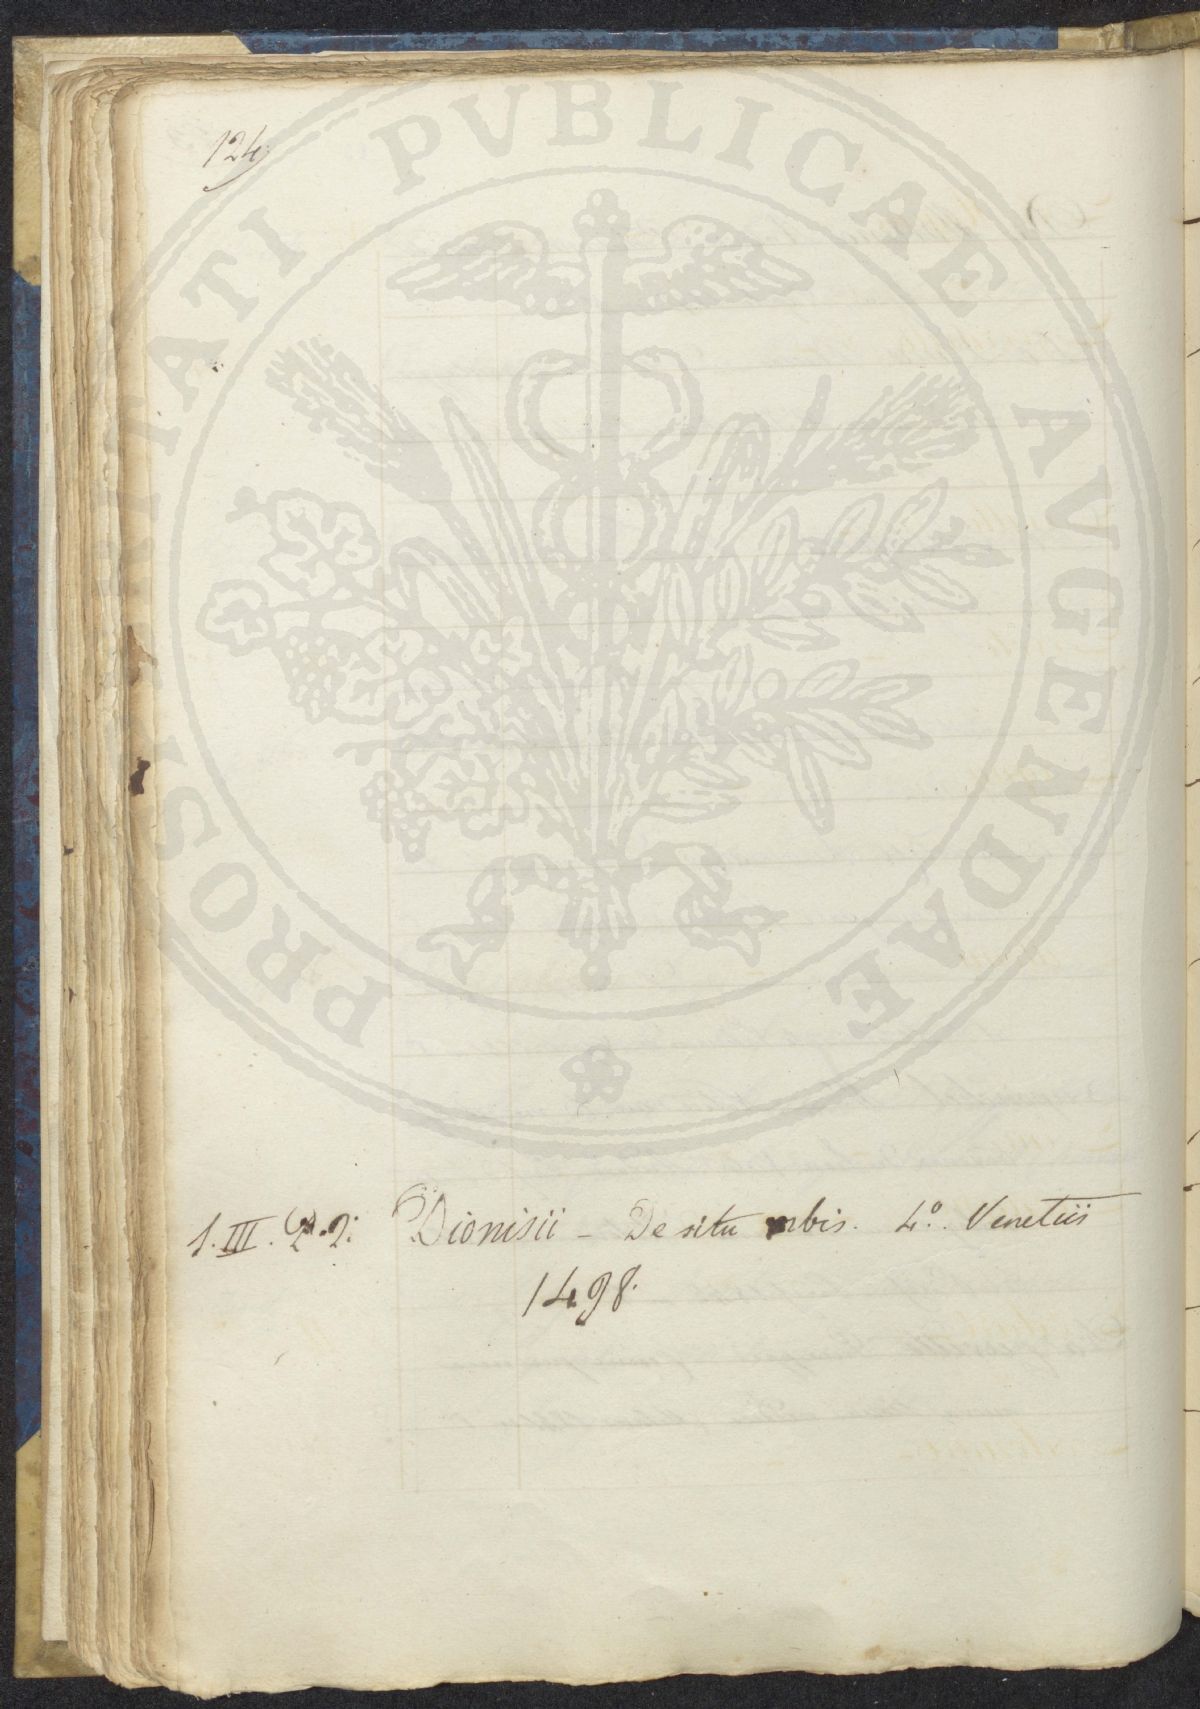 124
PROSPERITATI PUBLICAE AVGENDAE
Dionisii - De situ orbis. 4.º Venetiis
1498.